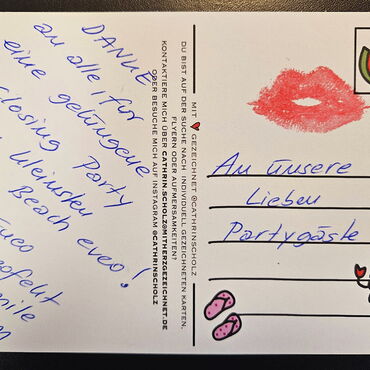 DANKE
an alle, für
eine gelungene
closing Party
Beach ever!
MIT GEZEICHNET @CATHRINSCHOLZ
DU BIST AUF DER SUCHE NACH INDIVIDUELL GEZEICHNETEN KARTEN,
FLYERN ODER AUFMERSAMKEITEN?
KONTAKTIERE MICH ÜBER CATHRIN.SCHOLZ@MITHERZGEZEICHNET.DE
ODER BESUCHE MICH AUF INSTAGRAM @CATHRINSCHOLZ
An unsere
Lieben
Partygäste